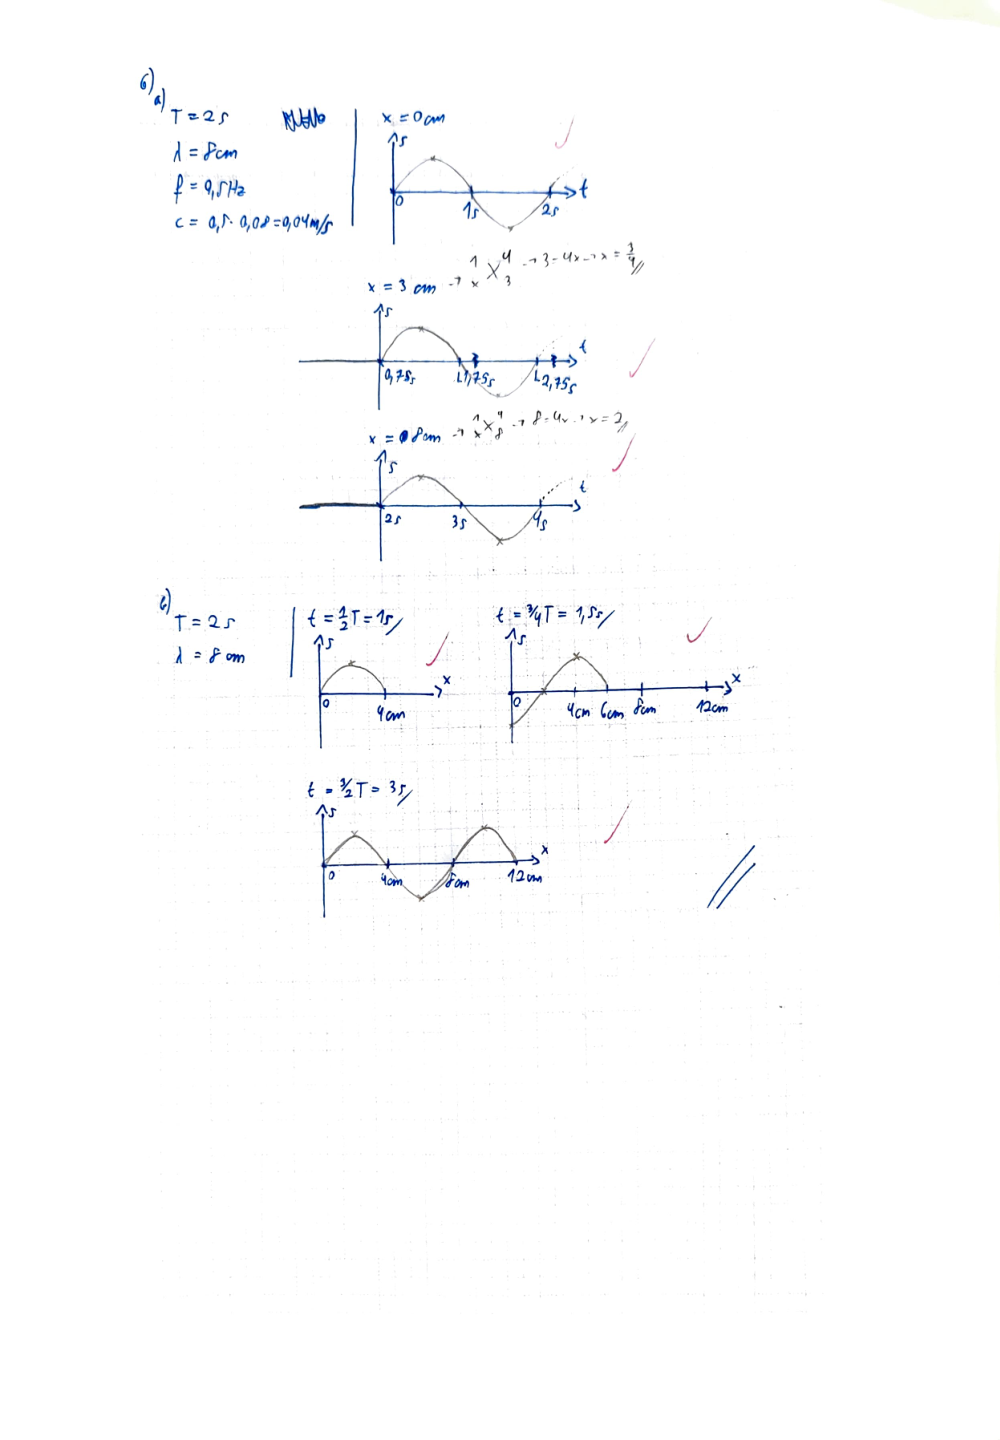 6)
a)
T = 2s
λ = 8cm
f = 0,5Hz
c = 0,5 · 0,08 = 0,04m/s
x = 0cm
s
0 1s 2s t
x = 3 cm → 1 x 4 3 → 3 = 4x → x = 3/4
s
t
0,75s 1,75s 2,75s
x = 8cm → 1 x 4 8 → 8 = 4x → x = 2
s
t
2s 3s 4s
b)
T = 2s
λ = 8 cm
t = 1/2 T = 1s
s
x
0 4cm
t = 3/4 T = 1,5s
s
x
0 4cm 6cm 8cm 12cm
t = 3/2 T = 3s
s
x
0 4cm 8cm 12cm